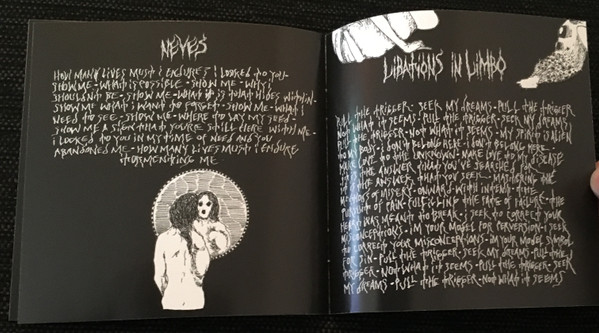 NEVES
HOW MANY LIVES MUST I ENDURE? I LOOKED TO YOU
SHOW ME - WHAT IS POSSIBLE - SHOW ME - WHY I
SHOULDN'T BE - SHOW ME - WHAT IS IT THAT HIDES WITHIN -
SHOW ME WHAT I WANT TO FORGET - SHOW ME - WHAT I
NEED TO SEE - SHOW ME - WHERE TO LAY MY SEED -
SHOW ME A SIGN THAT YOU'RE STILL HERE WITH ME -
I LOOKED TO YOU IN MY TIME OF NEED AS YOU
ABANDONED ME - HOW MANY LIVES MUST I ENDURE
TORMENTING ME
LIBATIONS IN LIMBO
PULL THE TRIGGER - SEEK MY DREAMS - PULL THE TRIGGER
NOT WHAT IT SEEMS - PULL THE TRIGGER - SEEK MY DREAMS
PULL THE TRIGGER - NOT WHAT IT SEEMS - MY SPIRIT IS ALIEN
TO MY BODY - I DON'T BELONG HERE - I DON'T BELONG HERE -
MAKE LOVE TO THE UNKNOWN - MAKE LOVE TO MY DISEASE
IS THE ANSWER WHAT
IS THE ANSWER - THAT YOU SEEK - MASTERING THE
OF MISERY - ONWARDS WITH INTENT - THE
PURSUIT OF PAIN - FULFILLING THE FATE OF FAILURE - THE
HEART WAS MEANT TO BREAK - I SEEK TO CORRECT YOUR
MISCONCEPTIONS - I'M YOUR MODEL FOR PERVERSION - I SEEK
TO CORRECT YOUR MISCONCEPTIONS - I'M YOUR MODEL SYMBOL
FOR SIN - PULL THE TRIGGER - SEEK MY DREAMS - PULL THE
TRIGGER - NOT WHAT IT SEEMS - PULL THE TRIGGER - SEEK
MY DREAMS - PULL THE TRIGGER - NOT WHAT IT SEEMS